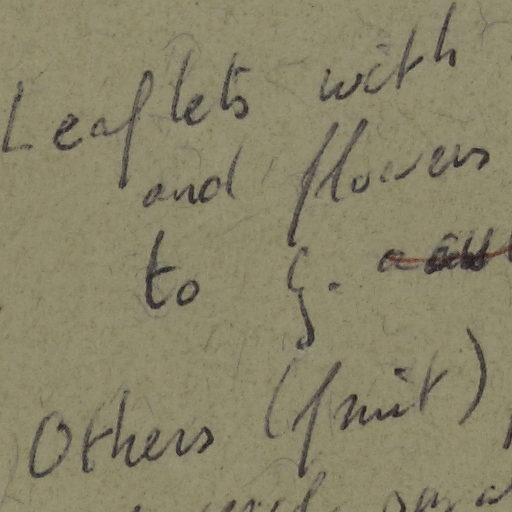 Leaflets with
and flowers
to G.
Others (fruit)